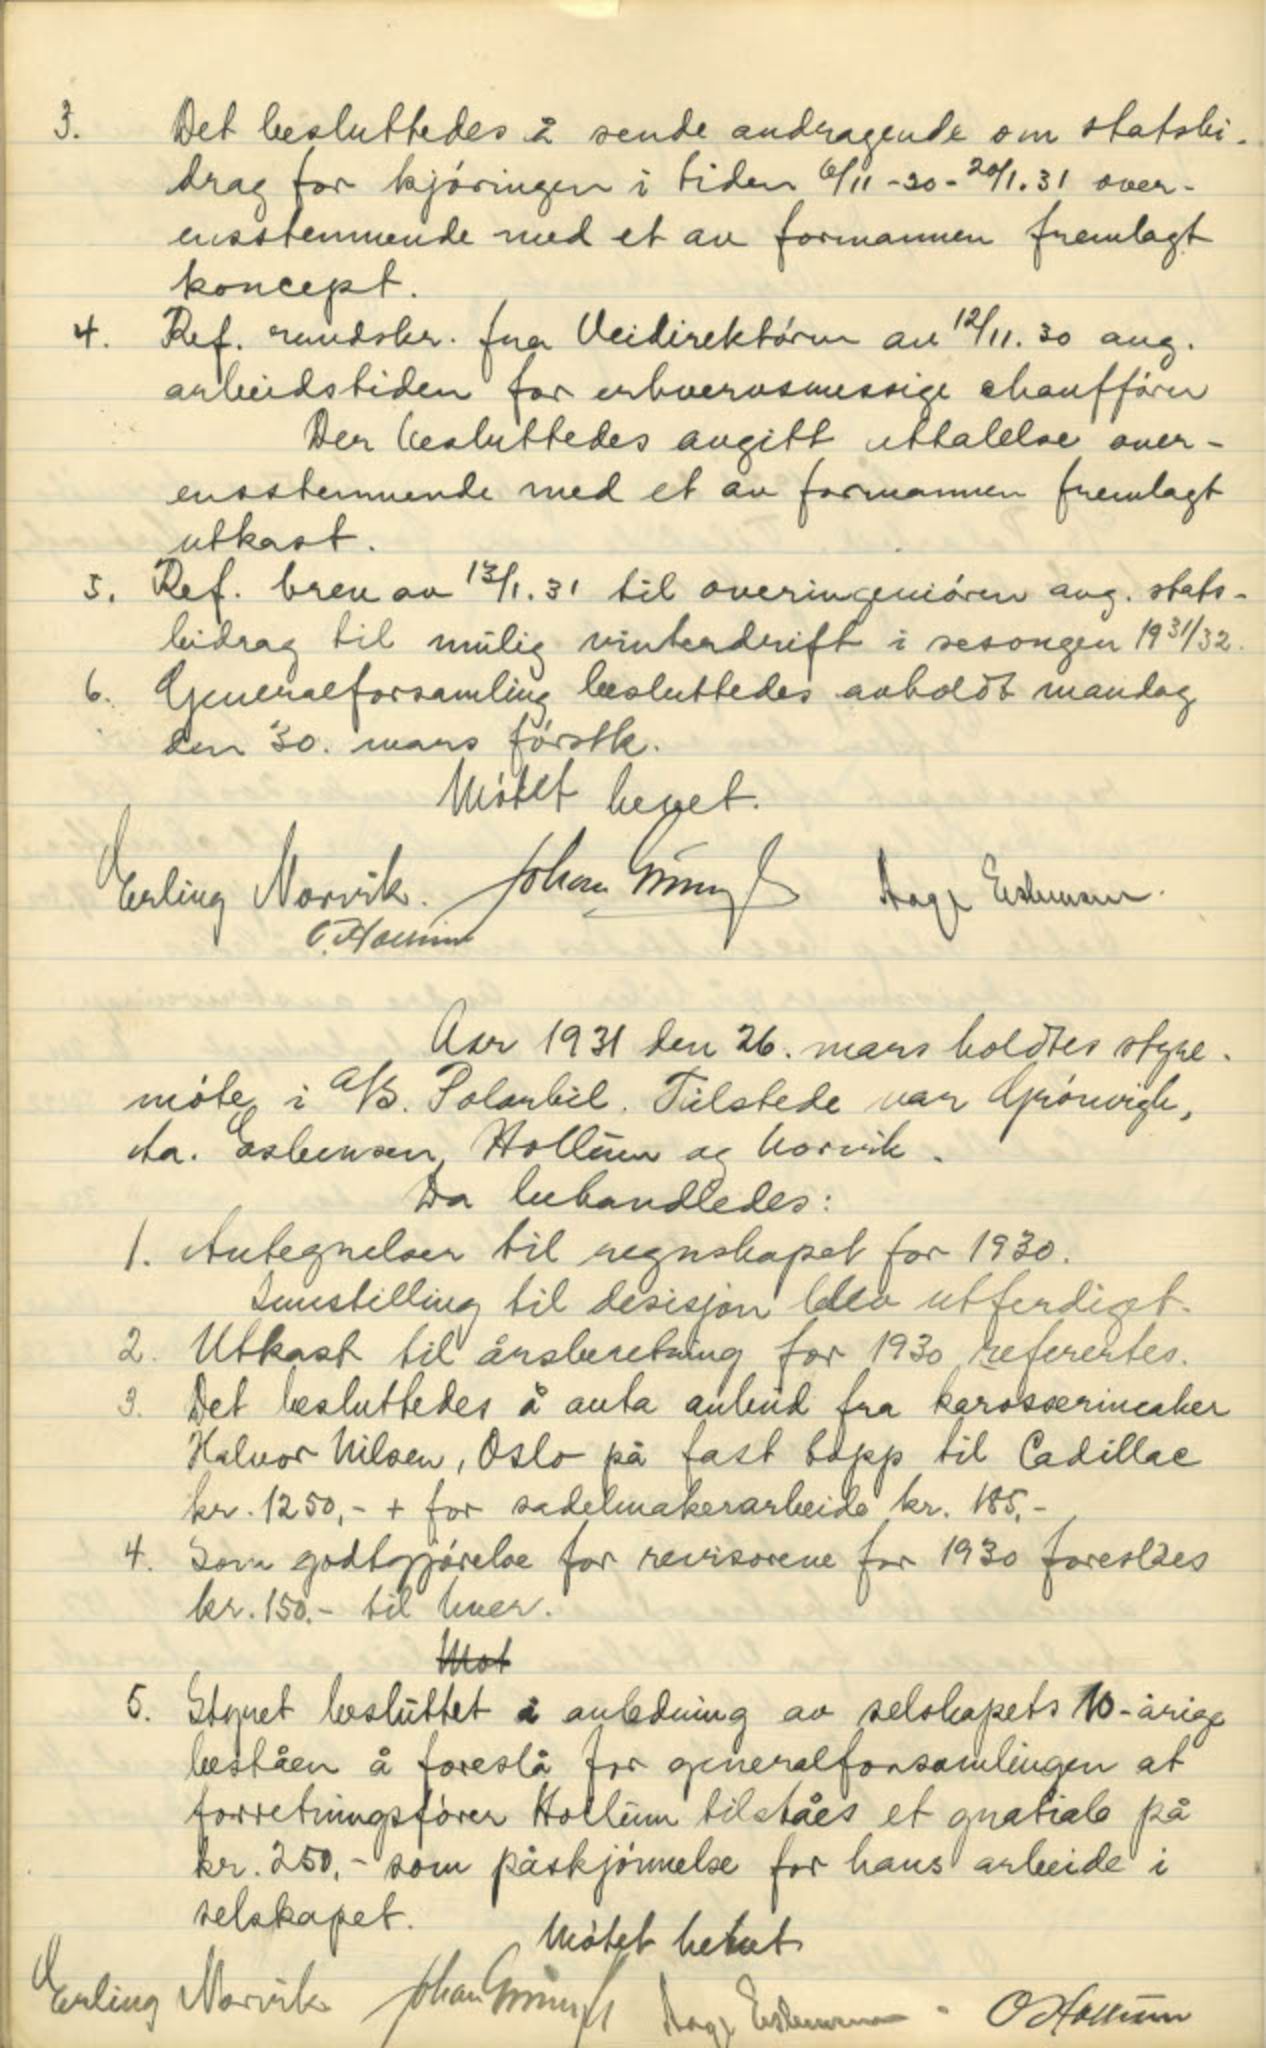 3. Det besluttedes å sende andragende om statsbi-
drag for kjøringen i tiden 6/11-30-20/1.31 over-
ensstemmende med et av formannen fremlagt
koncept.
4. Ref. rundskr. fra Veidirektøren av 12/11.30 ang.
arbeidstiden for erhvervsmessige chauffører
Der besluttedes avgitt uttalelse over-
ensstemmende med et av formannen fremlagt
utkast.
5. Ref. brev av 13/1.31 til overingeniøren ang. stats-
bidrag til mulig vinterdrift i sesongen 1931/32.
6. Generalforsamling besluttedes avholdt mandag
den 30. mars førstk.
Møtet hevet.
Erling Norvik. Johan Grønvigh Aage Esbensen.
O. Hollum
Aar 1931 den 26. mars holdtes styre-
møte i A/S. Polarbil. Tilstede var Grønvigh,
Aa. Esbensen, Hollum og Norvik.
Da behandledes:
1. Antegnelser til regnskapet for 1930.
Innstilling til desisjon blev utferdiget.
2. Utkast til årsberetning for 1930 referertes.
3. Det besluttedes å anta anbud fra karosserimaker
Halvor Nilsen, Oslo på fast topp til Cadillac
kr. 1250,- + for sadelmakerarbeide kr. 185,-
4. Som godtgjørelse for revisorene for 1930 foreslåes
kr. 150.- til hver.
Møt
5. Styret besluttet i anledning av selskapets 10-årige
beståen å foreslå for generalforsamlingen at
forretningsfører Hollum tilståes et gratiale på
kr. 250,- som påskjønnelse for hans arbeide i
selskapet.
Møtet hevet
Erling Norvik Johan Grønvigh Aage Esbensen. O Hollum